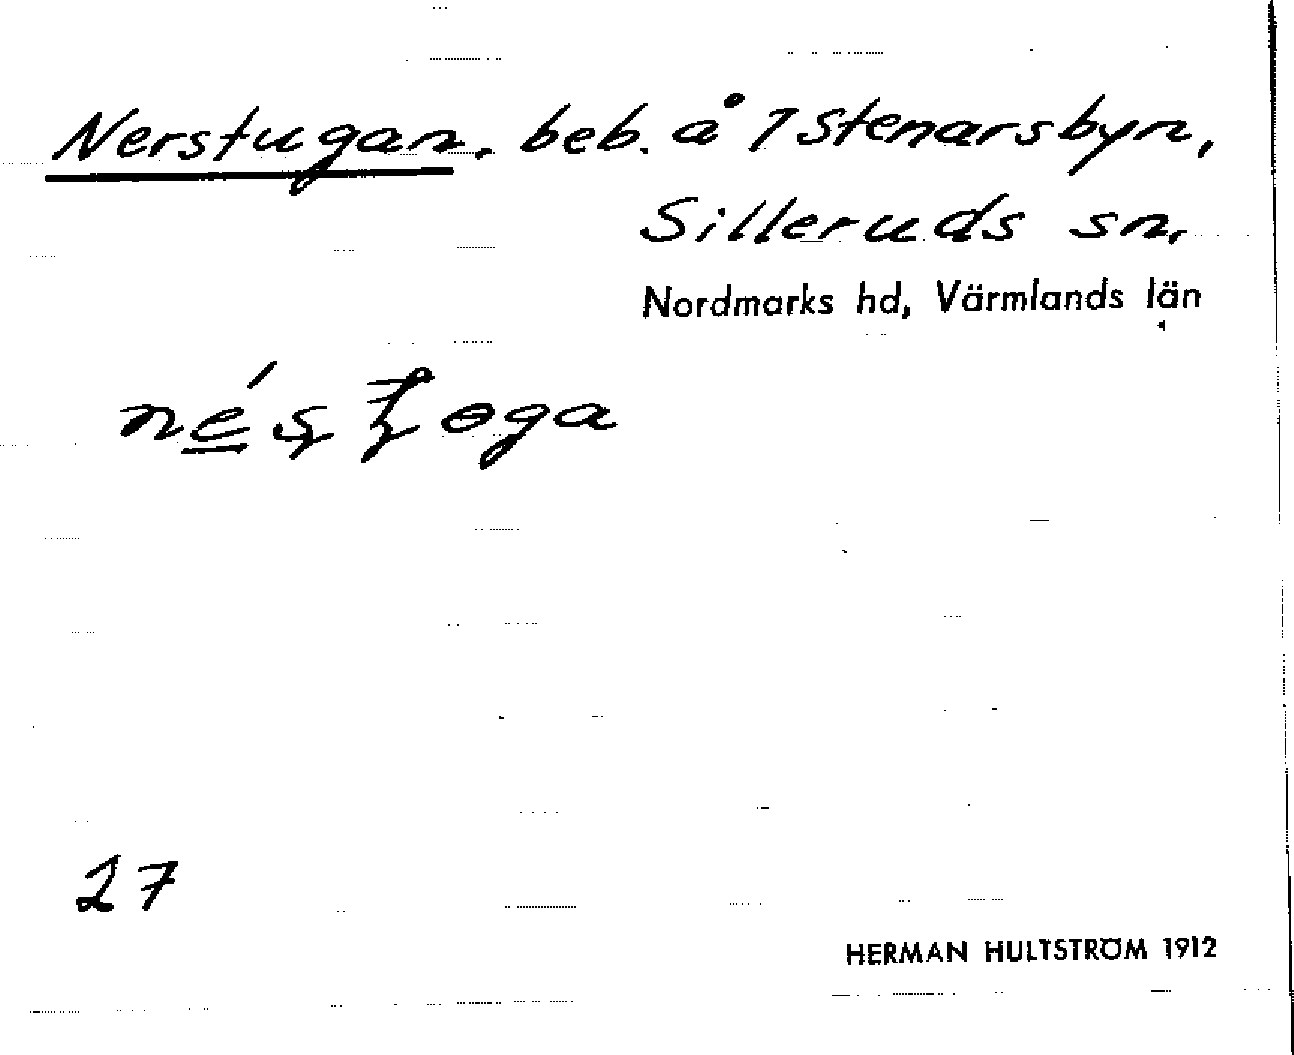 Nerstugan, beb. å 7 Stenarsbyn,
Silleruds sn,
Nordmarks hd, Värmlands län
27
HERMAN HULTSTRÖM 1912